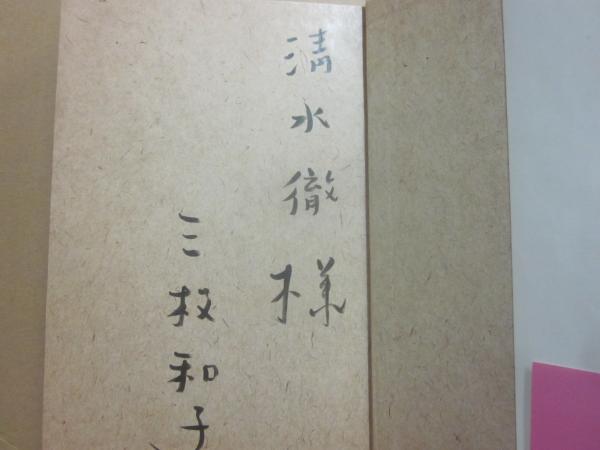 清水徹様
三枝和子